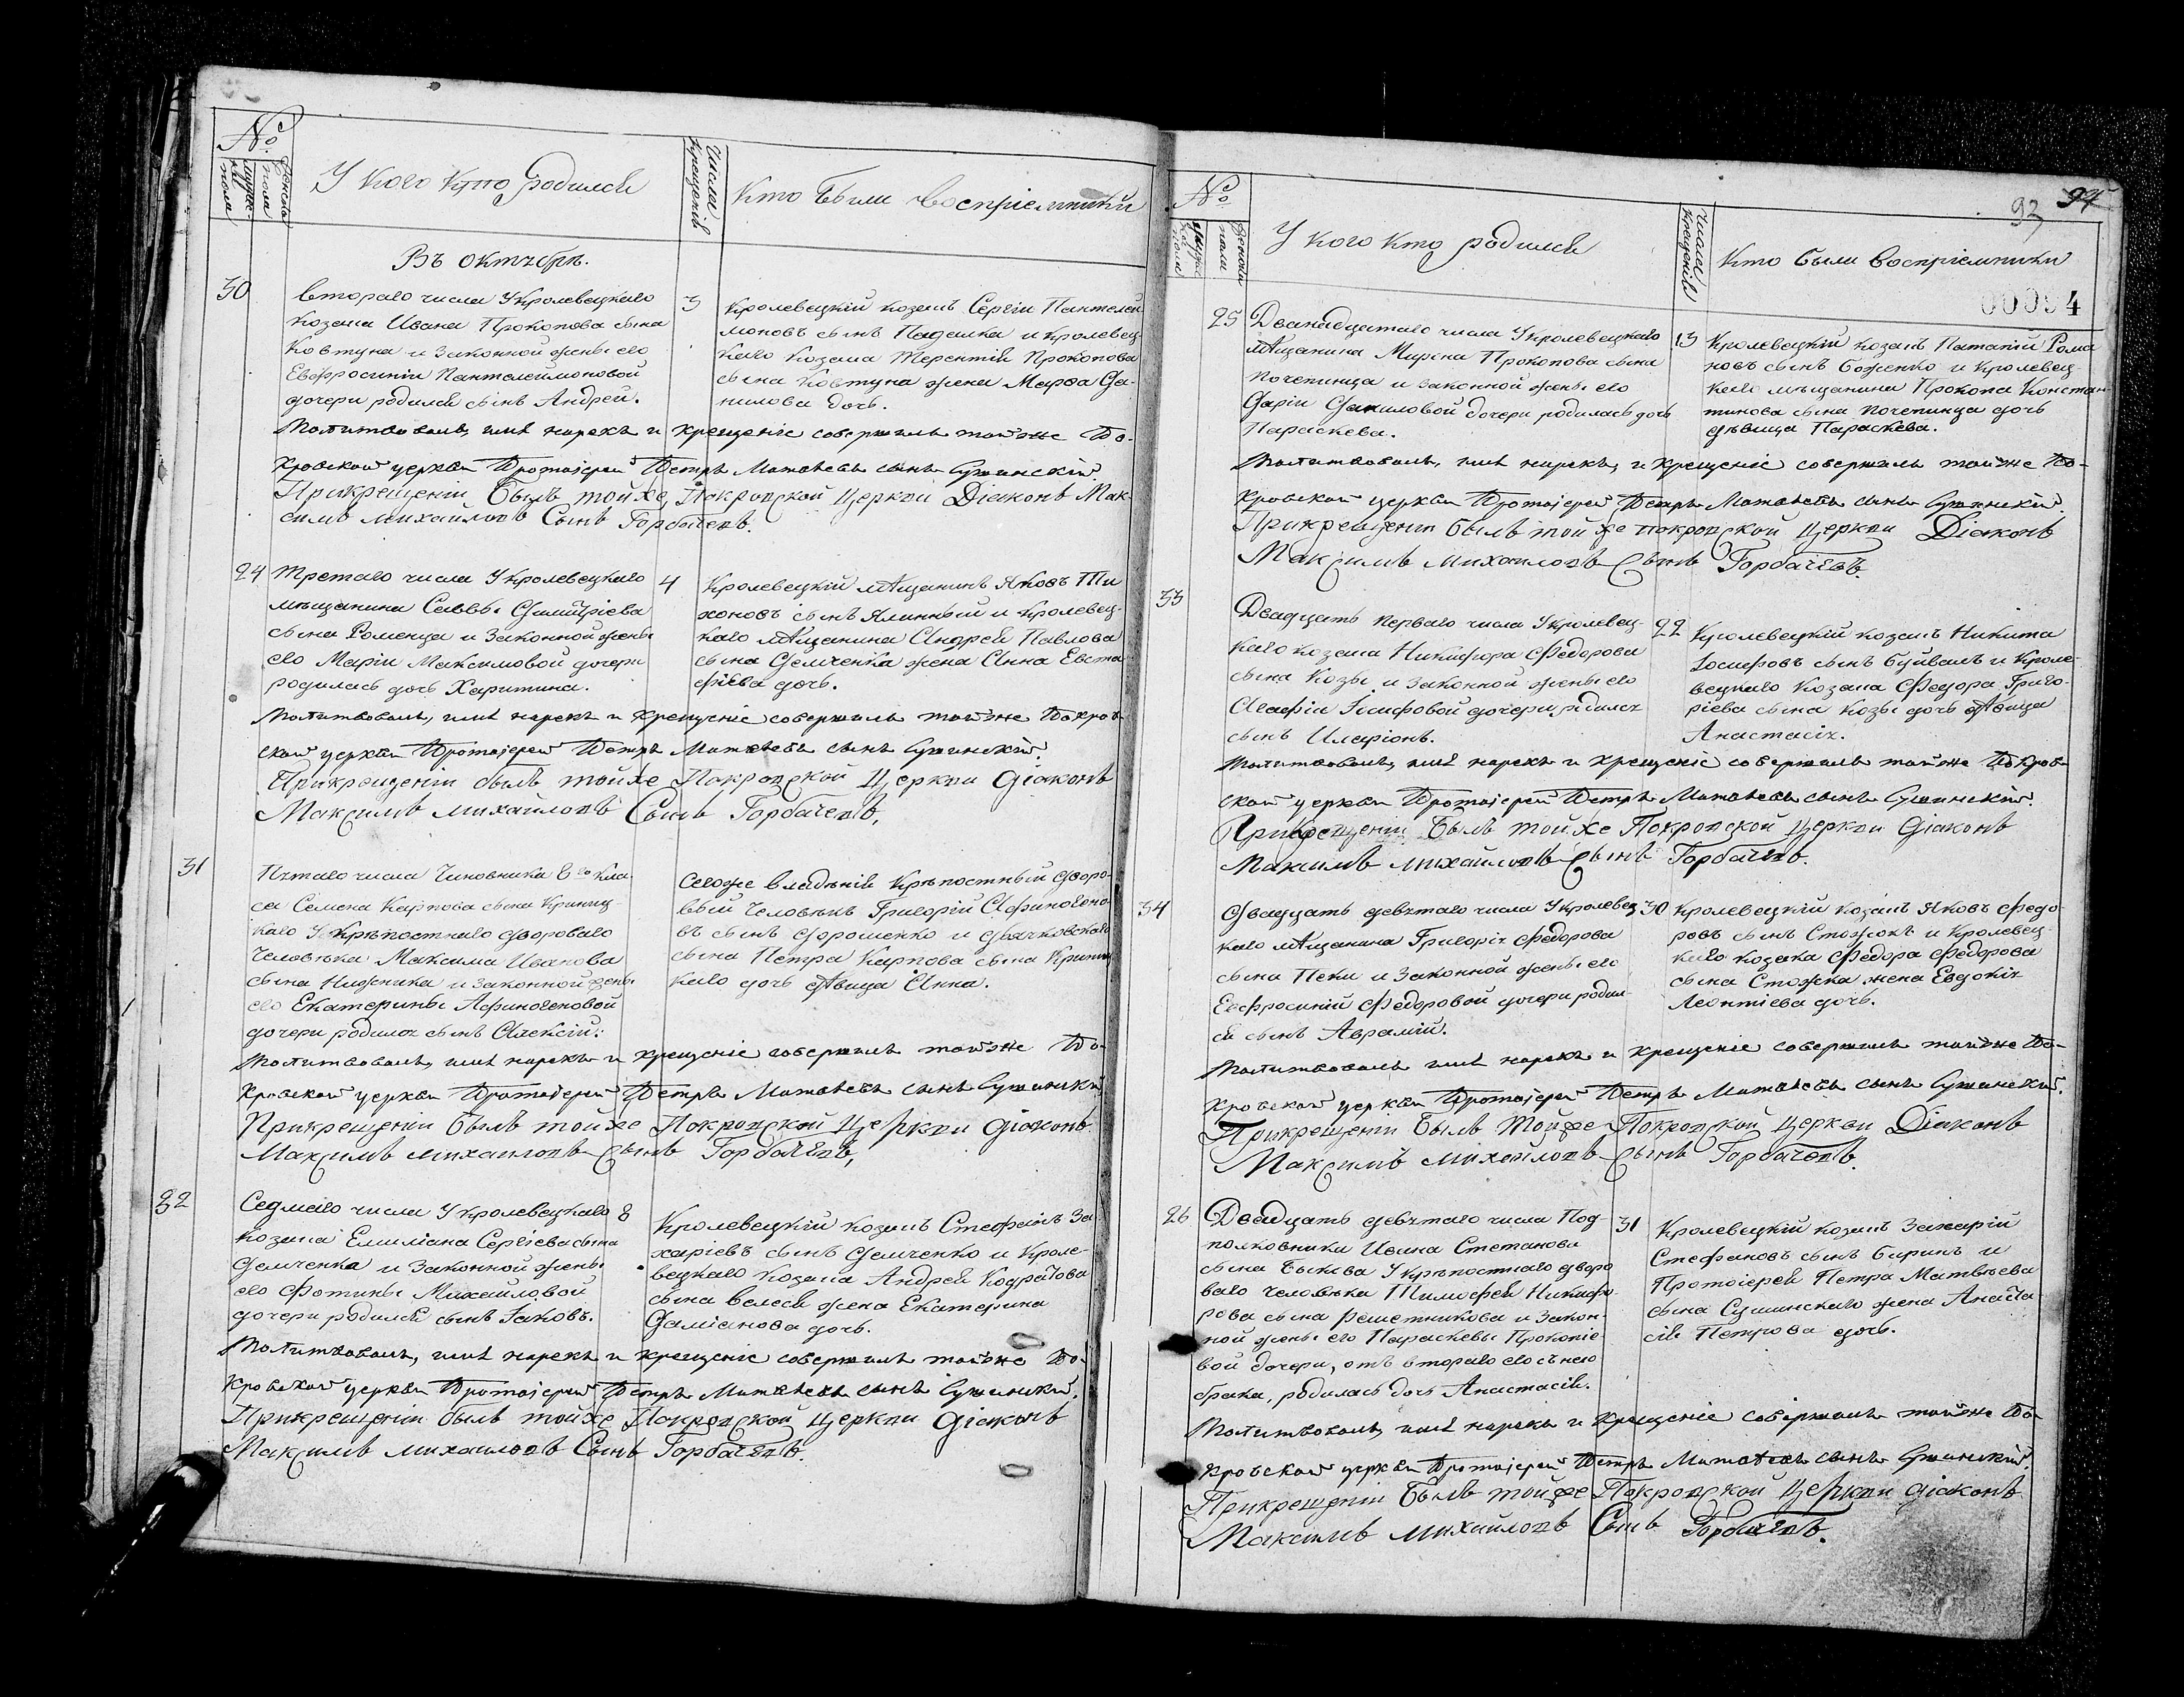 №
Мужеска пола
Женска пола
У кого кто родился
Числа крещенія
Кто были воспріемники
Въ октябрѣ.
30
втораго числа У кролевецкаго
козака Ивана Прокопова сына
Ковтуна и законной жены его
Евфросиніи Пантелеймоновой
дочери родился сынъ Андрей.
3
Кролевецкій козакъ Сергіи Пантелей
моновъ сынъ Падалка и кролевец
каго козака Терентія Прокопова
сына Ковтуна жена Марфа Да-
нилова дочь.
Молитвовалъ, имя нарекъ и крещеніе совершилъ тойже По-
кровской церкви Протоіерей Петръ Матвѣевъ сынъ Сушинскій.
Прикрещеніи былъ тойже Покровской церкви Діаконъ Мак
симъ Михайловъ Сынъ Горбачевъ.
24
Третаго числа У кролевецкаго
мѣщанина Саввы Димитріева
сына Роменца и законной жены
его Маріи Максимовой дочери
родилась дочь Харитина.
4
Кролевецкій мѣщанинъ Яковъ Ти
хоновъ сынъ Ялинный и кролевец-
каго мѣщанина Андрея Павлова
сына Демченка жена Анна Евста
фіева дочь.
Молитвовалъ, имя нарекъ и крещеніе совершилъ тойже Покров
ской церкви Протоіерей Петръ Матвѣевъ сынъ Сушинскій.
Прикрещеніи былъ тойже Покровской Церкви Діаконъ
Максимъ Михайловъ Сынъ Горбачевъ.
31
Пятаго числа Чиновника 8го кла
са Семена Карпова сына Криниц-
каго У крѣпостнаго двороваго
Человѣка Максима Иванова
сына Нижника и законной жены
его Екатерины Афиногеновой
дочери родился сынъ Алексій.
Сегоже владѣнія Крѣпостный дворо-
вый человѣкъ Григорій Афиногено
въ сынъ Дорошенко и Дьячковскаго
сына Петра Карпова сына Криниц
каго дочь дѣвица Анна.
Молитвовалъ, имя нарекъ и крещеніе совершилъ тойже По-
кровской церкви Протоіерей Петръ Матвѣевъ сынъ Сушинскій.
Прикрещеніи былъ тойже Покровской Церкви Діаконъ
Максимъ Михайловъ Сынъ Горбачевъ,
32
Седмаго числа У кролевецкаго
козака Емиліана Сергіева сына
Демченка и законной жены
его Фотины Михайловой
дочери родился сынъ Іаковъ.
8
Кролевецкій козакъ Стефанъ За
харіевъ сынъ Демченко и Кроле-
вецкаго козака Андрея Кодратова
сына Велася жена Екатерина
Даміанова дочь.
Молитвовалъ, имя нарекъ и крещеніе совершилъ тойже По-
кровской церкви Протоіерей Петръ Матвѣевъ сынъ Сушинскій.
Прикрещеніи былъ тойже Покровской Церкви Діаконъ
Максимъ Михайловъ Сынъ Горбачевъ.
93 94
№
Мужеска пола
Женска пола
У кого кто родился
Числа крещенія
Кто были воспріемники
00094
25
Дванадцатаго числа У кролевецкаго
мѣщанина Мирона Прокопова сына
Почепинца и законной жены его
Даріи Даниловой дочери родилась дочь
Параскева.
13
Кролевецкій козакъ Патапій Рома
новъ сынъ Боженко и Кролевец-
каго мѣщанина Прокопа Констан
тинова сына Почепинца дочь
дѣвица Параскева.
Молитвовалъ, имя нарекъ, и крещеніе совершилъ тойже По-
кровской церкви Протоіерей Петръ Матвѣевъ сынъ Сушинскій.
Прикрещеніи былъ тойже покровской Церкви Діаконъ
Максимъ Михайловъ Сынъ Горбачевъ.
33
Двадцать перваго числа У кролевец-
каго козака Никифора Федорова
сына Козы и законной жены его
Агафіи Іосифовой дочери родился
сынъ Иларіонъ.
22
Кролевецкій козакъ Никита
Іосифовъ сынъ Буйвалъ и Кроле-
вецкаго козака Федора Григо-
ріева сына Козы дочь дѣвица
Анастасія.
Молитвовалъ, имя нарекъ и крещеніе совершилъ тойже Покров-
ской церкви Протоіерей Петръ Матвѣевъ сынъ Сушинскій.
Прикрещеніи былъ тойже Покровской Церкви Діаконъ
Максимъ Михайловъ Сынъ Горбачевъ.
34
Двадцать девятаго числа У кролевец
каго мѣщанина Григорія Федорова
сына Пеки и законной жены его
Евфросиніи Федоровой дочери родил-
ся сынъ Аврамій.
30
Кролевецкій козакъ Яковъ Федо
ровъ сынъ Стожокъ и Кролевец
каго козака Федора Федорова
сына Стожка жена Евдокія
Леонтіева дочь.
Молитвовалъ имя нарекъ и крещеніе совершилъ тойже По-
кровской церкви Протоіерей Петръ Матвѣевъ сынъ Сушинскій.
Прикрещеніи былъ тойже Покровской Церкви Діаконъ
Максимъ Михайловъ Сынъ Горбачевъ.
26
Двадцать девятаго числа Под-
полковника Ивана Степанова
сына Быкова У крѣпостнаго дворо
ваго человѣка Тимофея Никифо
рова сына Решетникова и закон-
ной жены его Параскевы Прокопіе
вой дочери, отъ втораго его съ нею
брака, родилась дочь Анастасія.
31
Кролевецкій козакъ Захарій
Стефановъ сынъ Биринъ и
Протоіерея Петра Матвѣева
сына Сушинскаго жена Анаста
сія Петрова дочь.
Молитвовалъ, имя нарекъ и крещеніе совершилъ тойже По-
кровской церкви Протоіерей Петръ Матвѣевъ сынъ Сушинскій.
Прикрещеніи былъ тойже Покровской Церкви Діаконъ
Максимъ Михайловъ Сынъ Горбачевъ.